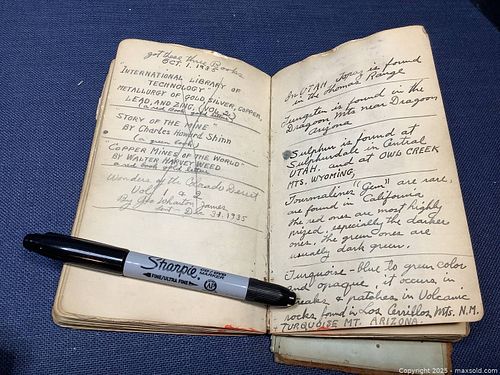 got these three Books
OCT. 1. 1935
"INTERNATIONAL LIBRARY OF
TECHNOLOGY"
METALLURGY OF GOLD, SILVER, COPPER,
LEAD, AND ZINC, (VOL. 21)
STORY OF THE MINE
By Charles Howard Shinn
(a green book)
"COPPER MINES OF THE WORLD"
BY WALTER HARVEY WEED
Wonders of the Colorado Desert
Vol 1 & 2
By Geo Wharton James
Dec 31, 1935
In UTAH Topaz is found
in the Thomas Range
Tungsten is found in the
Dragoon Mts near Dragoon
Arizona
Sulphur is found at
Sulphurdale in Central
UTAH, and at OWL CREEK
MTS. WYOMING,
Tourmalines "Gem" are rare,
are found in California
the red ones are most highly
prized, especially the darker
ones. The green ones are
usually dark green.
Turquoise - blue to green color
and opaque, it occurs in
streaks & patches in Volcanic
rocks found in Los Cerrillos Mts. N.M.
TURQUOISE MT. ARIZONA.
Sharpie
FINE/ULTRA FINE
Copyright 2025 - maxsold.com